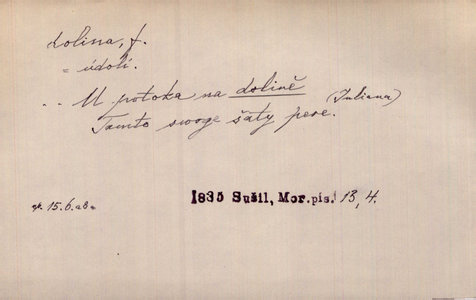 dolina, f.
= údolí.
.. U potoka na dolině (Juliana)
Tamto svoje šaty pere.
1835 Sušil, Mor.pís. 13, 4.
15.6.28.